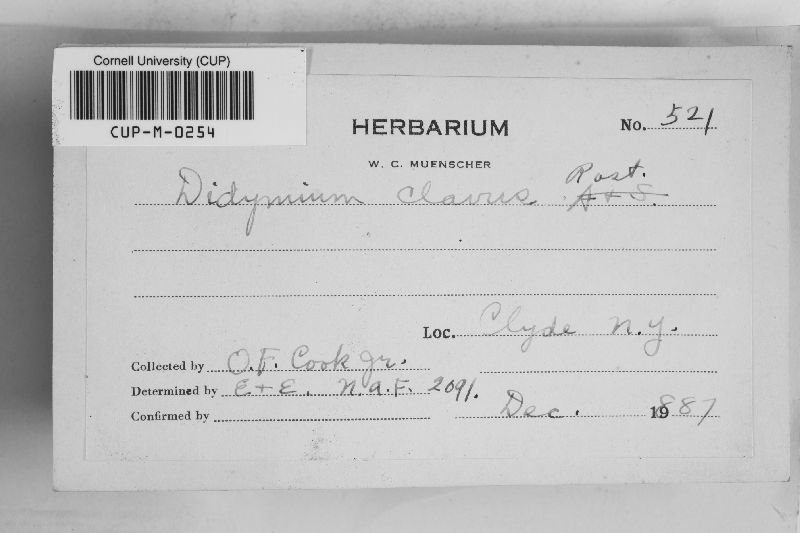 Cornell University (CUP)
CUP-M-0254
HERBARIUM
No. 521
W. C. MUENSCHER
Didymium clavus Rost.
A + S.
Loc. Clyde N.Y.
Collected by O.F. Cook Jr.
Determined by E + E. N.A.F. 2091.
Confirmed by
Dec. 1887